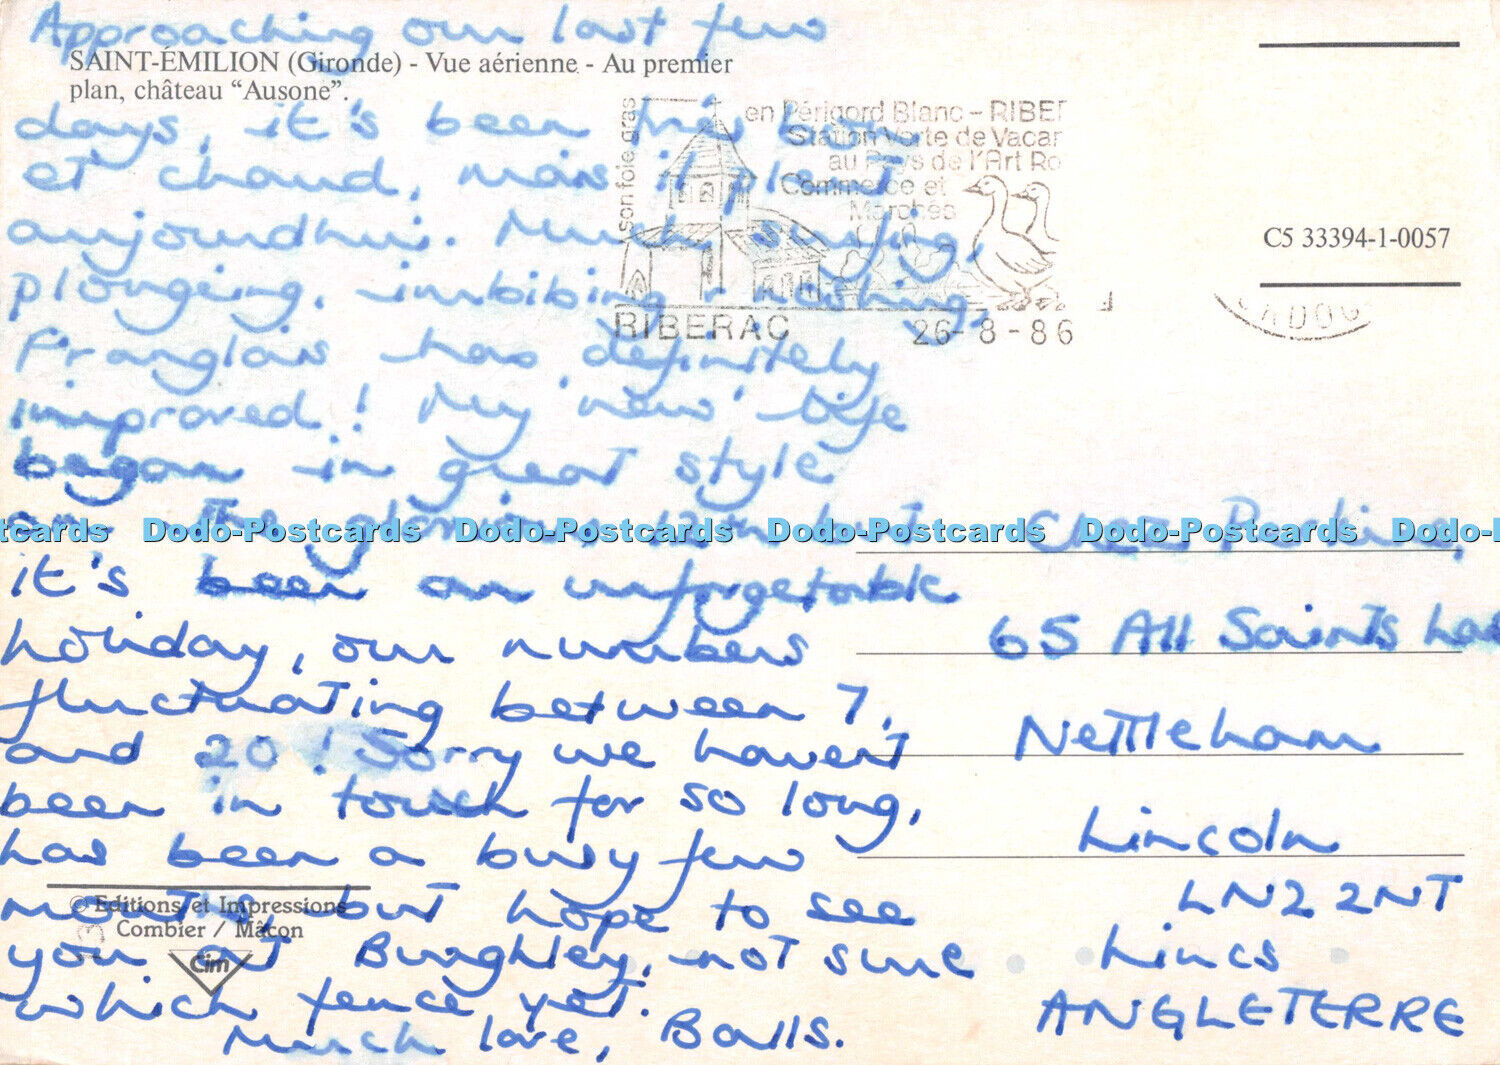 Approaching our last few
SAINT-ÉMILION (Gironde) - Vue aérienne - Au premier
plan, château “Ausone”.
days, it's been très bon
et chaud, mais il pleut
aujourdhui. Much surfing,
plongeing, imbibing, noshing,
Franglais has definitely
improved! My 'new' life
began in great style
on The glorious 12th but
it's been an unforgetable
holiday, our numbers
fluctuating between 7,
and 20! Sorry we haven't
been in touch for so long,
has been a busy few
months, but hope to see
you at Burghley, not sure
which fence yet.
Much love, Balls.
© Editions et Impressions
Combier / Mâcon
Cim
son foie gras
en Périgord Blanc - RIBER
Station Verte de Vacan
au Pays de l'Art Ro
Commerce et
Marchés
RIBERAC
26-8-86
C5 33394-1-0057
Perkins,
65 All Saints
Nettleham
Lincoln
LN2 2NT
Lincs
ANGLETERRE
Dodo-Postcards Dodo-Postcards Dodo-Postcards Dodo-Postcards